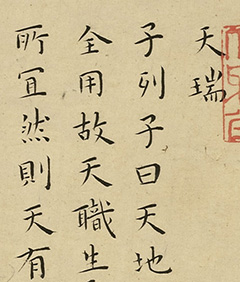 天瑞
子列子曰天地
全用故天職生
所宜然則天有